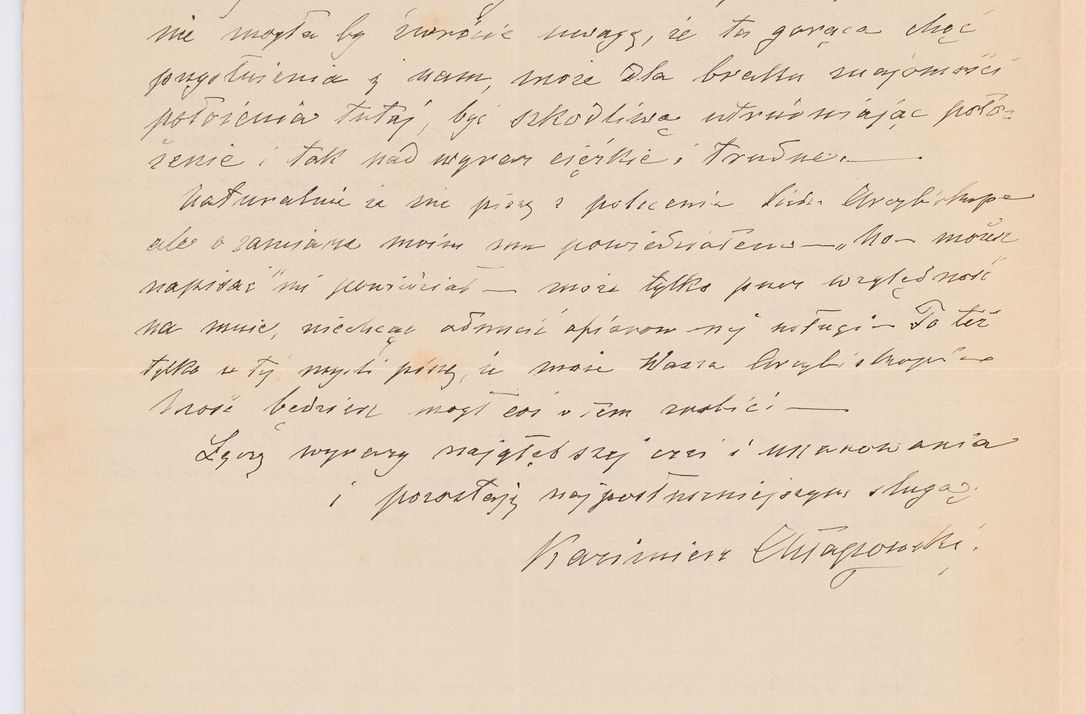 nie mogła by zwrócić uwagę, że ta gorąca chęć
przysłużenia z nam, może dla braku znajomości
położenia tutaj, być szkodliwą utrudniając poło-
żenie i tak nad wyraz ciężkie i trudne. —
Naturalnie że nie piszę z polecenia Arcybiskupa
ale o zamiarze moim mu powiedziałem — „No — możesz
napisać" mi powiedział — może tylko przez wzgledność
na mnie, niechcąc odrzucić ofiarowanej usługi — To też
tylko w tej myśli piszę, że może Wasza Arcybiskupia
Mość będziesz mógł coś w tem zrobić —
Łączę wyrazy najgłębszej czci i uszanowania
i pozostaję najposłuszniejszym sługą
Kazimierz Chłapowski.